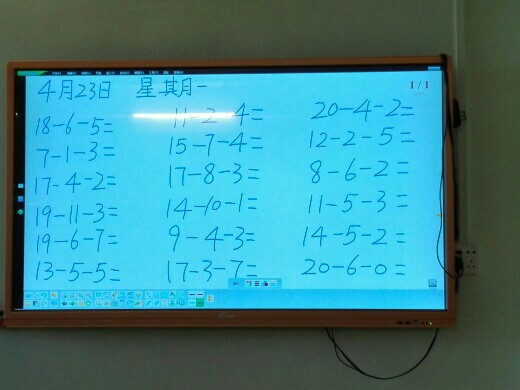 4月23日 星期一
1/1
18-6-5= 11-2-4= 20-4-2=
7-1-3= 15-7-4= 12-2-5=
17-4-2= 17-8-3= 8-6-2=
19-11-3= 14-10-1= 11-5-3=
19-6-7= 9-4-3= 14-5-2=
13-5-5= 17-3-7= 20-6-0=